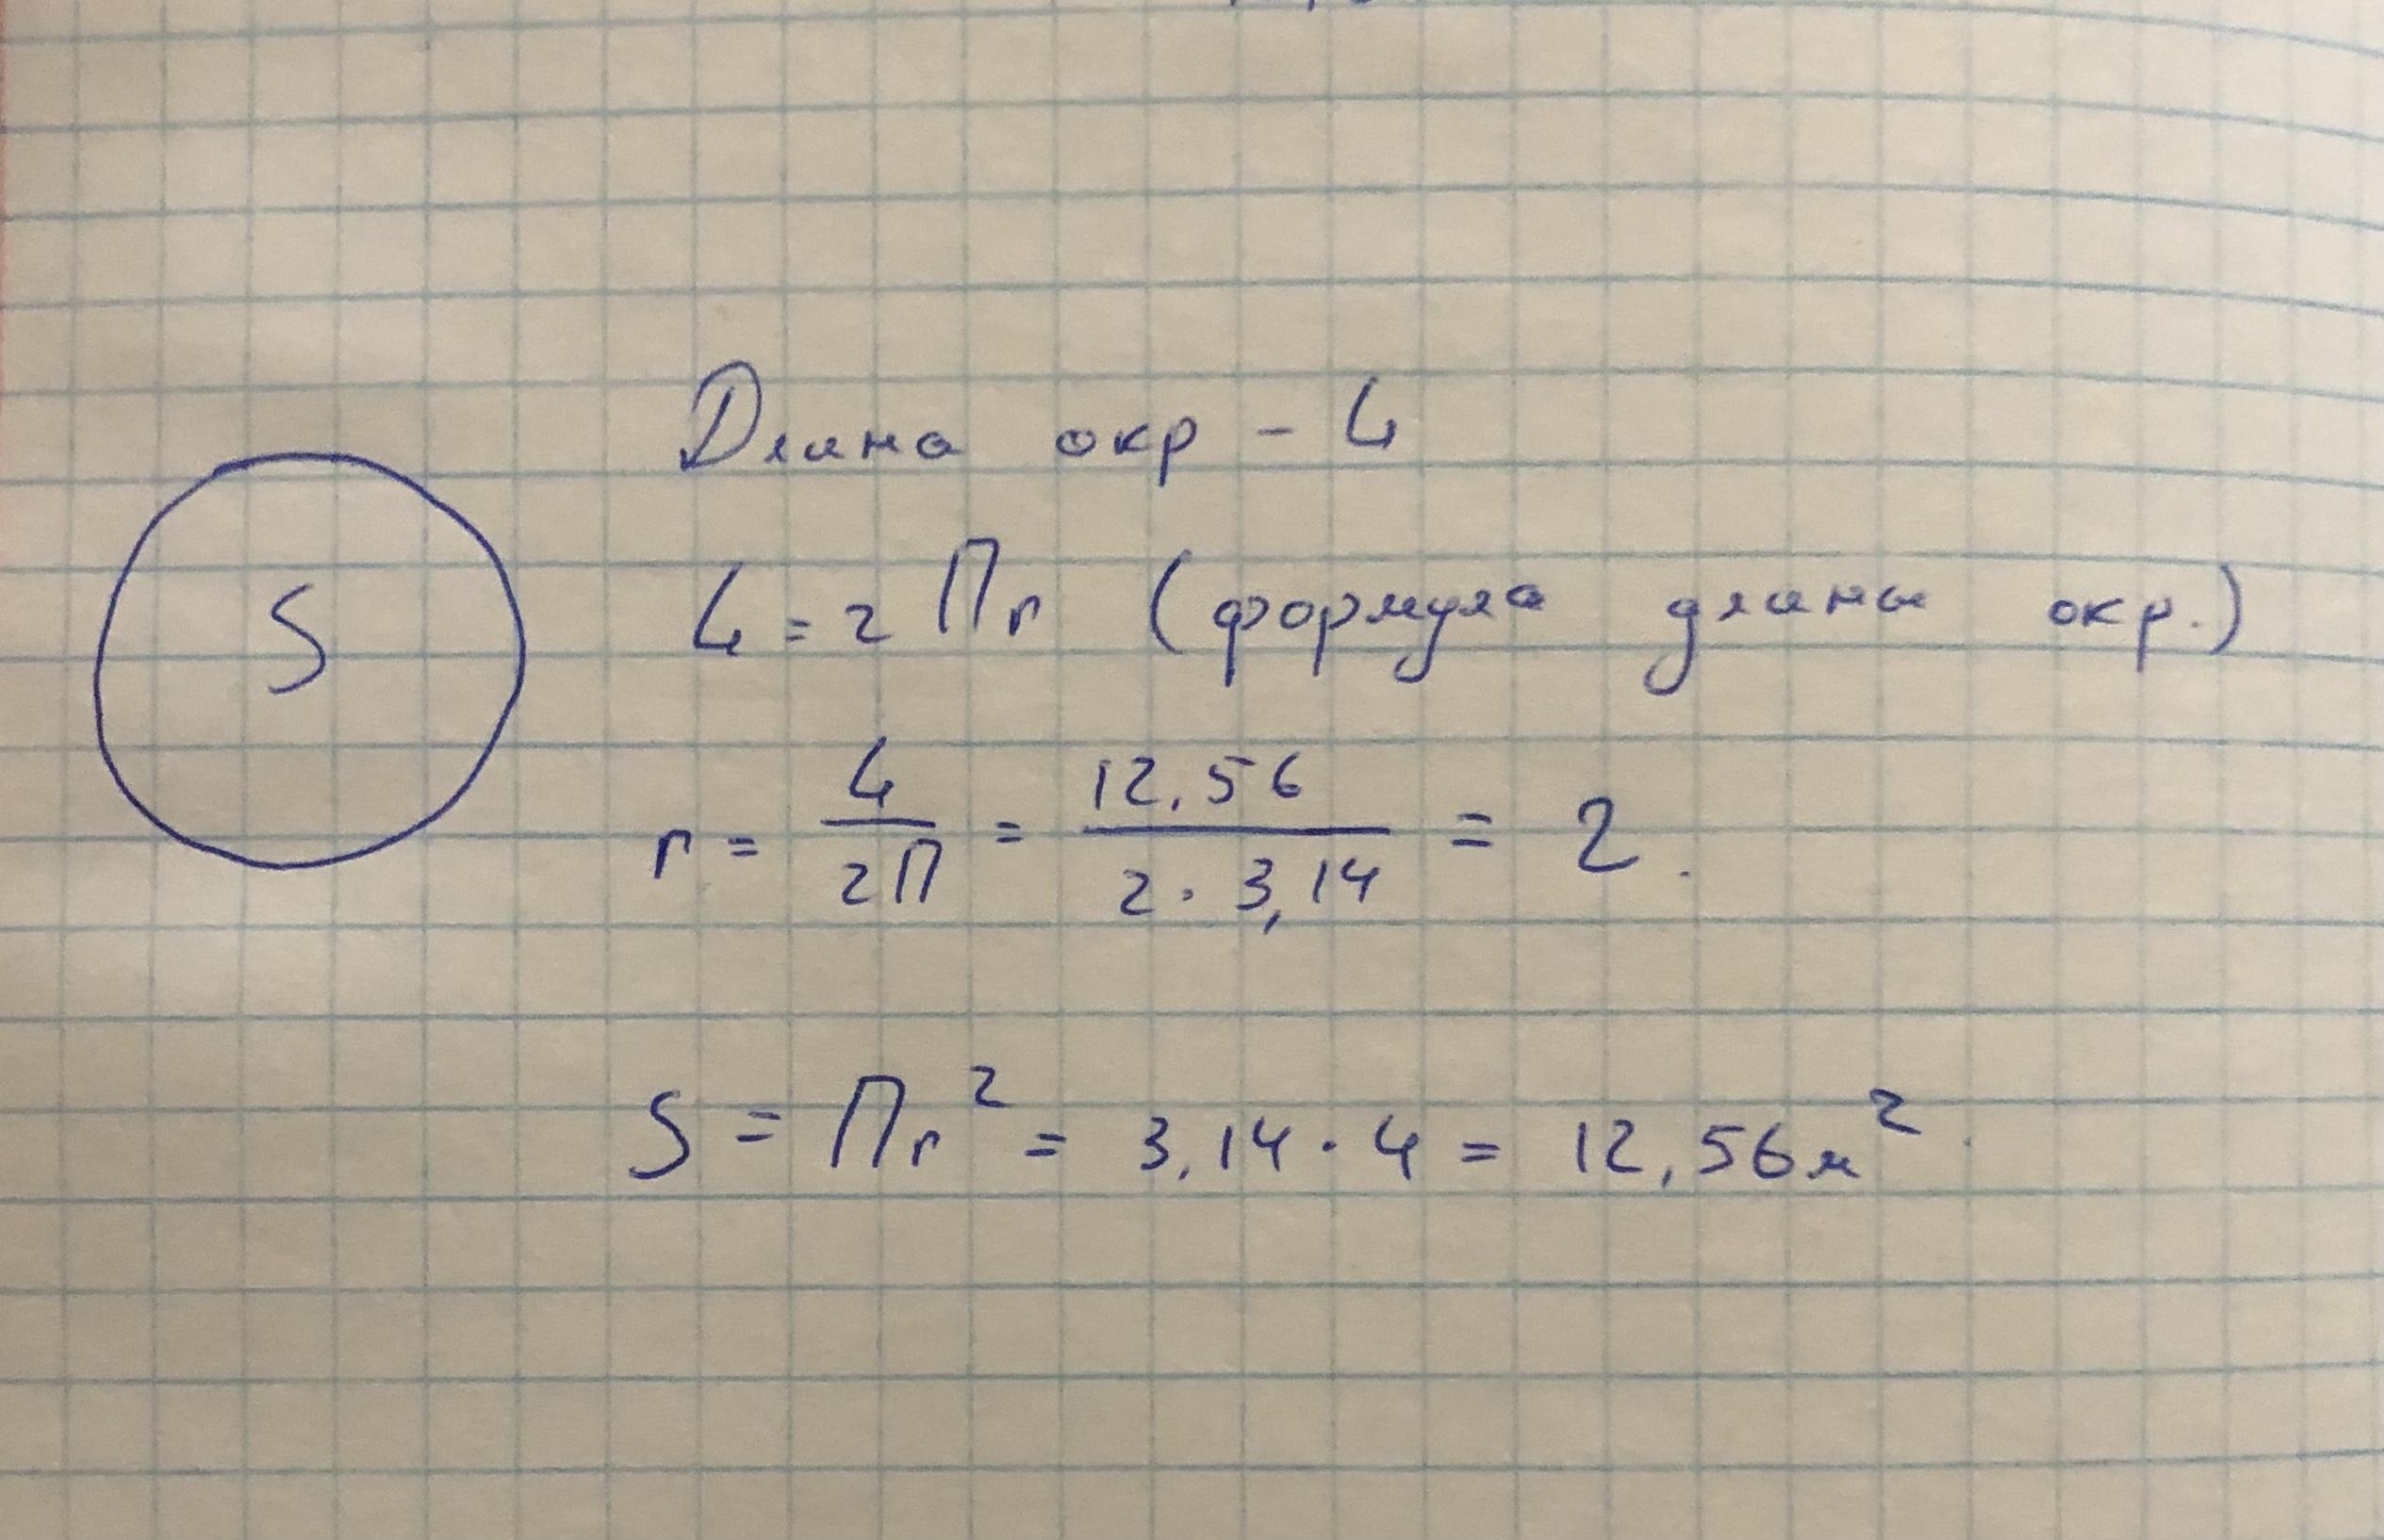 S
Длина окр - L
L = 2Пr (формула длины окр.)
r = L/2П = 12,56/2·3,14 = 2.
S = Пr² = 3,14·4 = 12,56м².